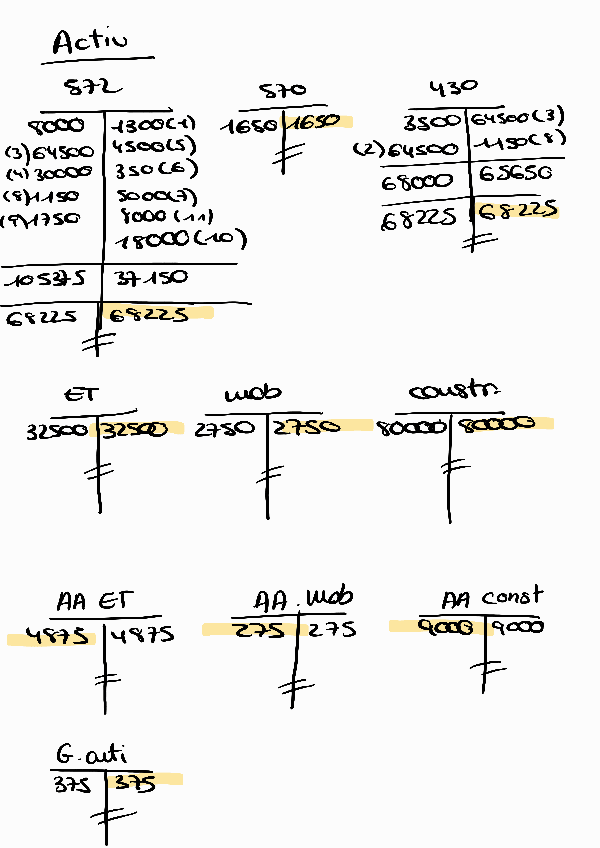 Activ
572
570
430
8000 1300(1)
(3)64500 4500(5)
(4)30000 350(6)
(8)1150 5000(7)
(9)1750 8000(11)
18000(10)
105375 37150
68225 68225
1650 1650
3500 64500(3)
(2)64500 1150(8)
68000 65650
68225 68225
ET
mob
constr.
32500 32500
2750 2750
80000 80000
AA ET
AA.Mob
AA const
4875 4875
275 275
9000 9000
G.anti
375 375